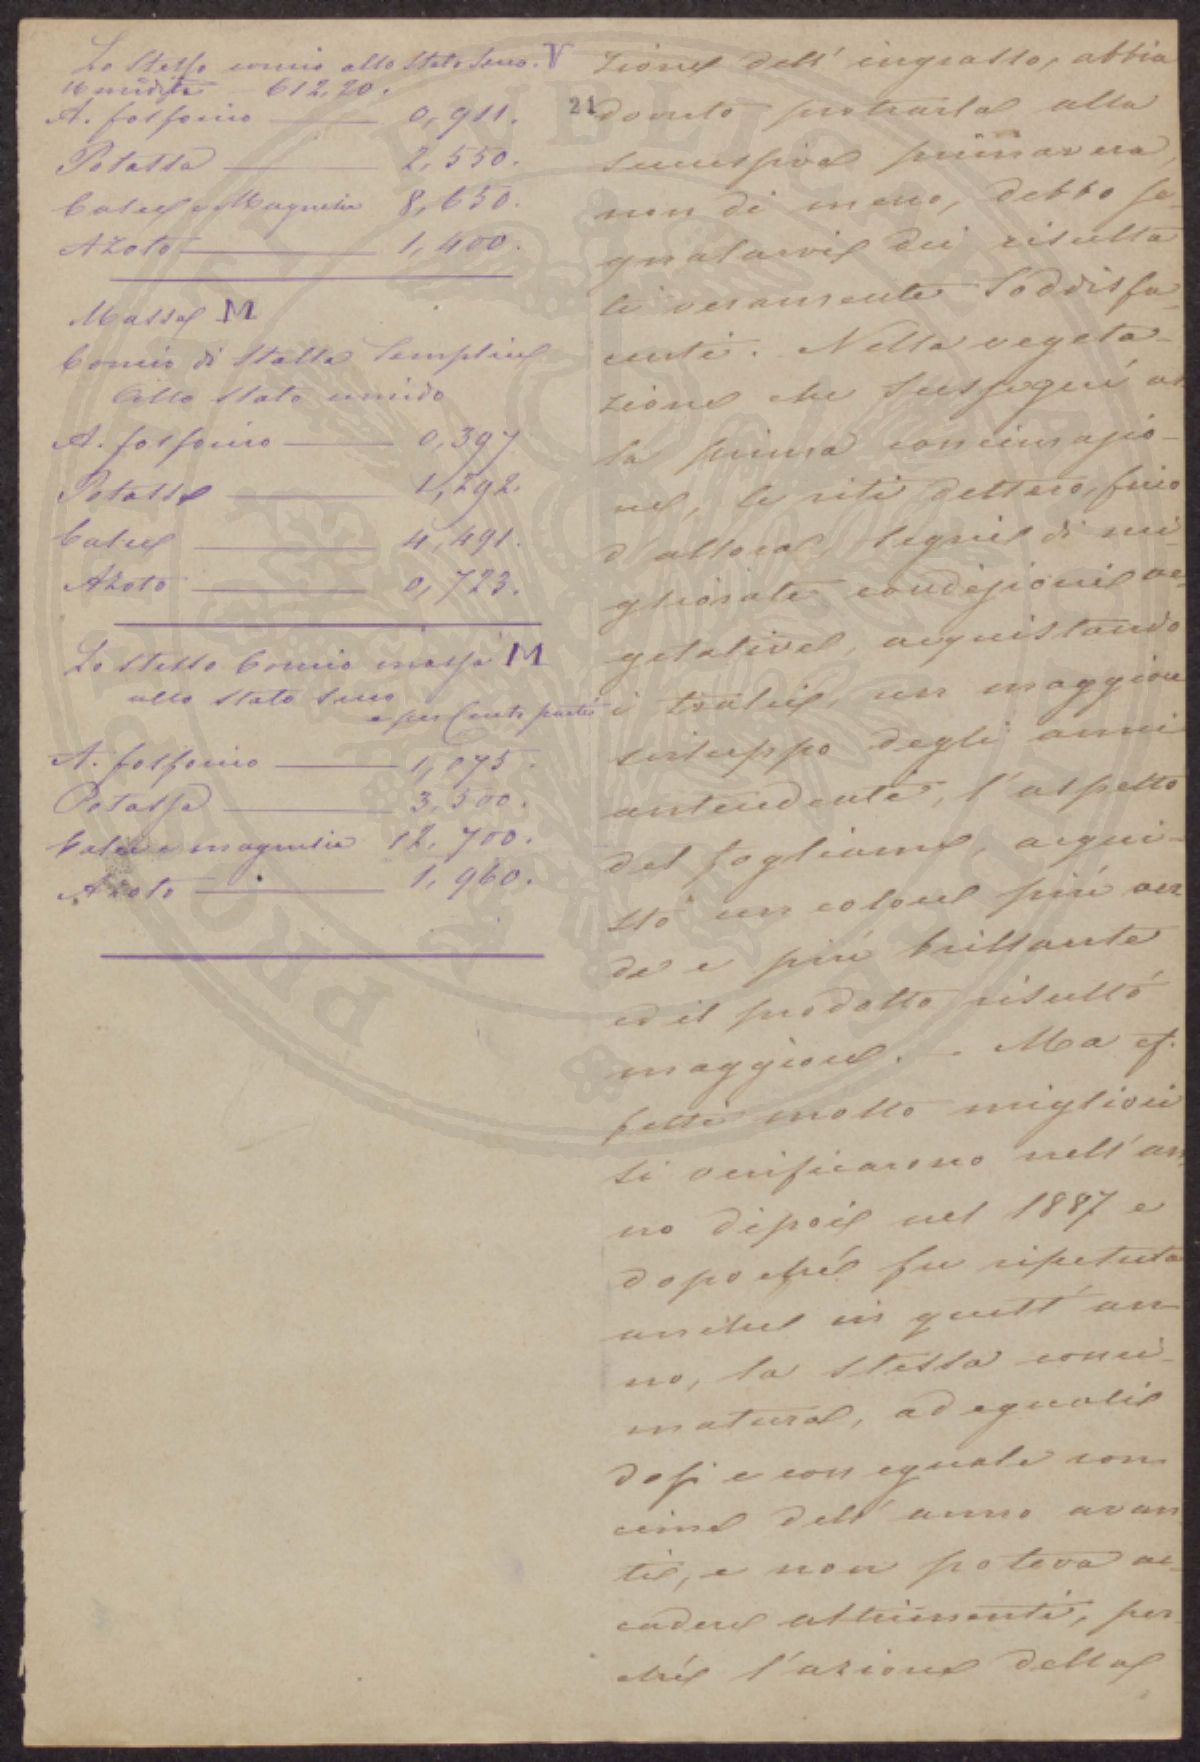 Lo stesso concio allo stato secco. V
Umidità 612,20.
A. fosforico 0,911.
Potassa 2,550.
Calce e Magnesia 8,650.
Azoto 1,400.
Massa M
Concio di stalla semplice
Allo stato umido
A. fosforico 0,397
Potassa 1,292.
Calce 4,491.
Azoto 0,723.
Lo stesso Concio massa M
allo stato secco
e per Cento parti
A. fosforico 1,075.
Potassa 3,500.
Calce e magnesia 12,700.
Azoto 1,960.
21
zione dell' ingrasso, abbia
dovuto protrarla alla
successiva primavera,
non di meno, debbo se-
gnalarvi dei risulta
ti veramente soddisfa-
centi. Nella vegeta-
zione che susseguì al
la prima concimazio-
ne, le viti dettero, fino
d'allora, segni di mi-
gliorate condizioni ve-
getative, acquistando
i tralci, un maggiore
sviluppo degli anni
antecedenti, l'aspetto
del fogliame, acqui-
stò un colore più ver
de e più brillante
ed il prodotto risultò
maggiore. — Ma ef-
fetti molto migliori
si verificarono nell'an
no dipoi nel 1887 e
dopo ché fu ripetuta
anche in quell' an
no, la stessa conci-
matura, ad eguali
dosi e con eguale con
cime dell' anno avan
ti, e non poteva ac-
cadere altrimenti, per
ché l'azione della